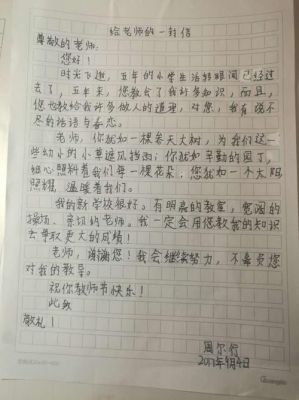 给老师的一封信
尊敬的老师:
您好!
时光飞逝,五年的小学生活转眼间已经过
去了,五年来,您教会了我许多知识,而且,
您也教给我许多做人的道理,对您,我有说不
尽的话语与眷恋。
老师,你犹如一棵参天大树,为我们这一
些幼小的小草遮风挡雨;你犹如辛勤的园丁,
细心照料着我们每一棵花朵;您犹如一个太阳
照耀,温暖着我们。
我的新学校很好。有明亮的教室,宽阔的
操场、亲切的老师。我一定会用您教我的知识
去争取更大的成绩!
老师,谢谢您!我会继续努力,不辜负您
对我的教导。
祝你教师节快乐!
此致
敬礼!
周尔行
2017年9月4日